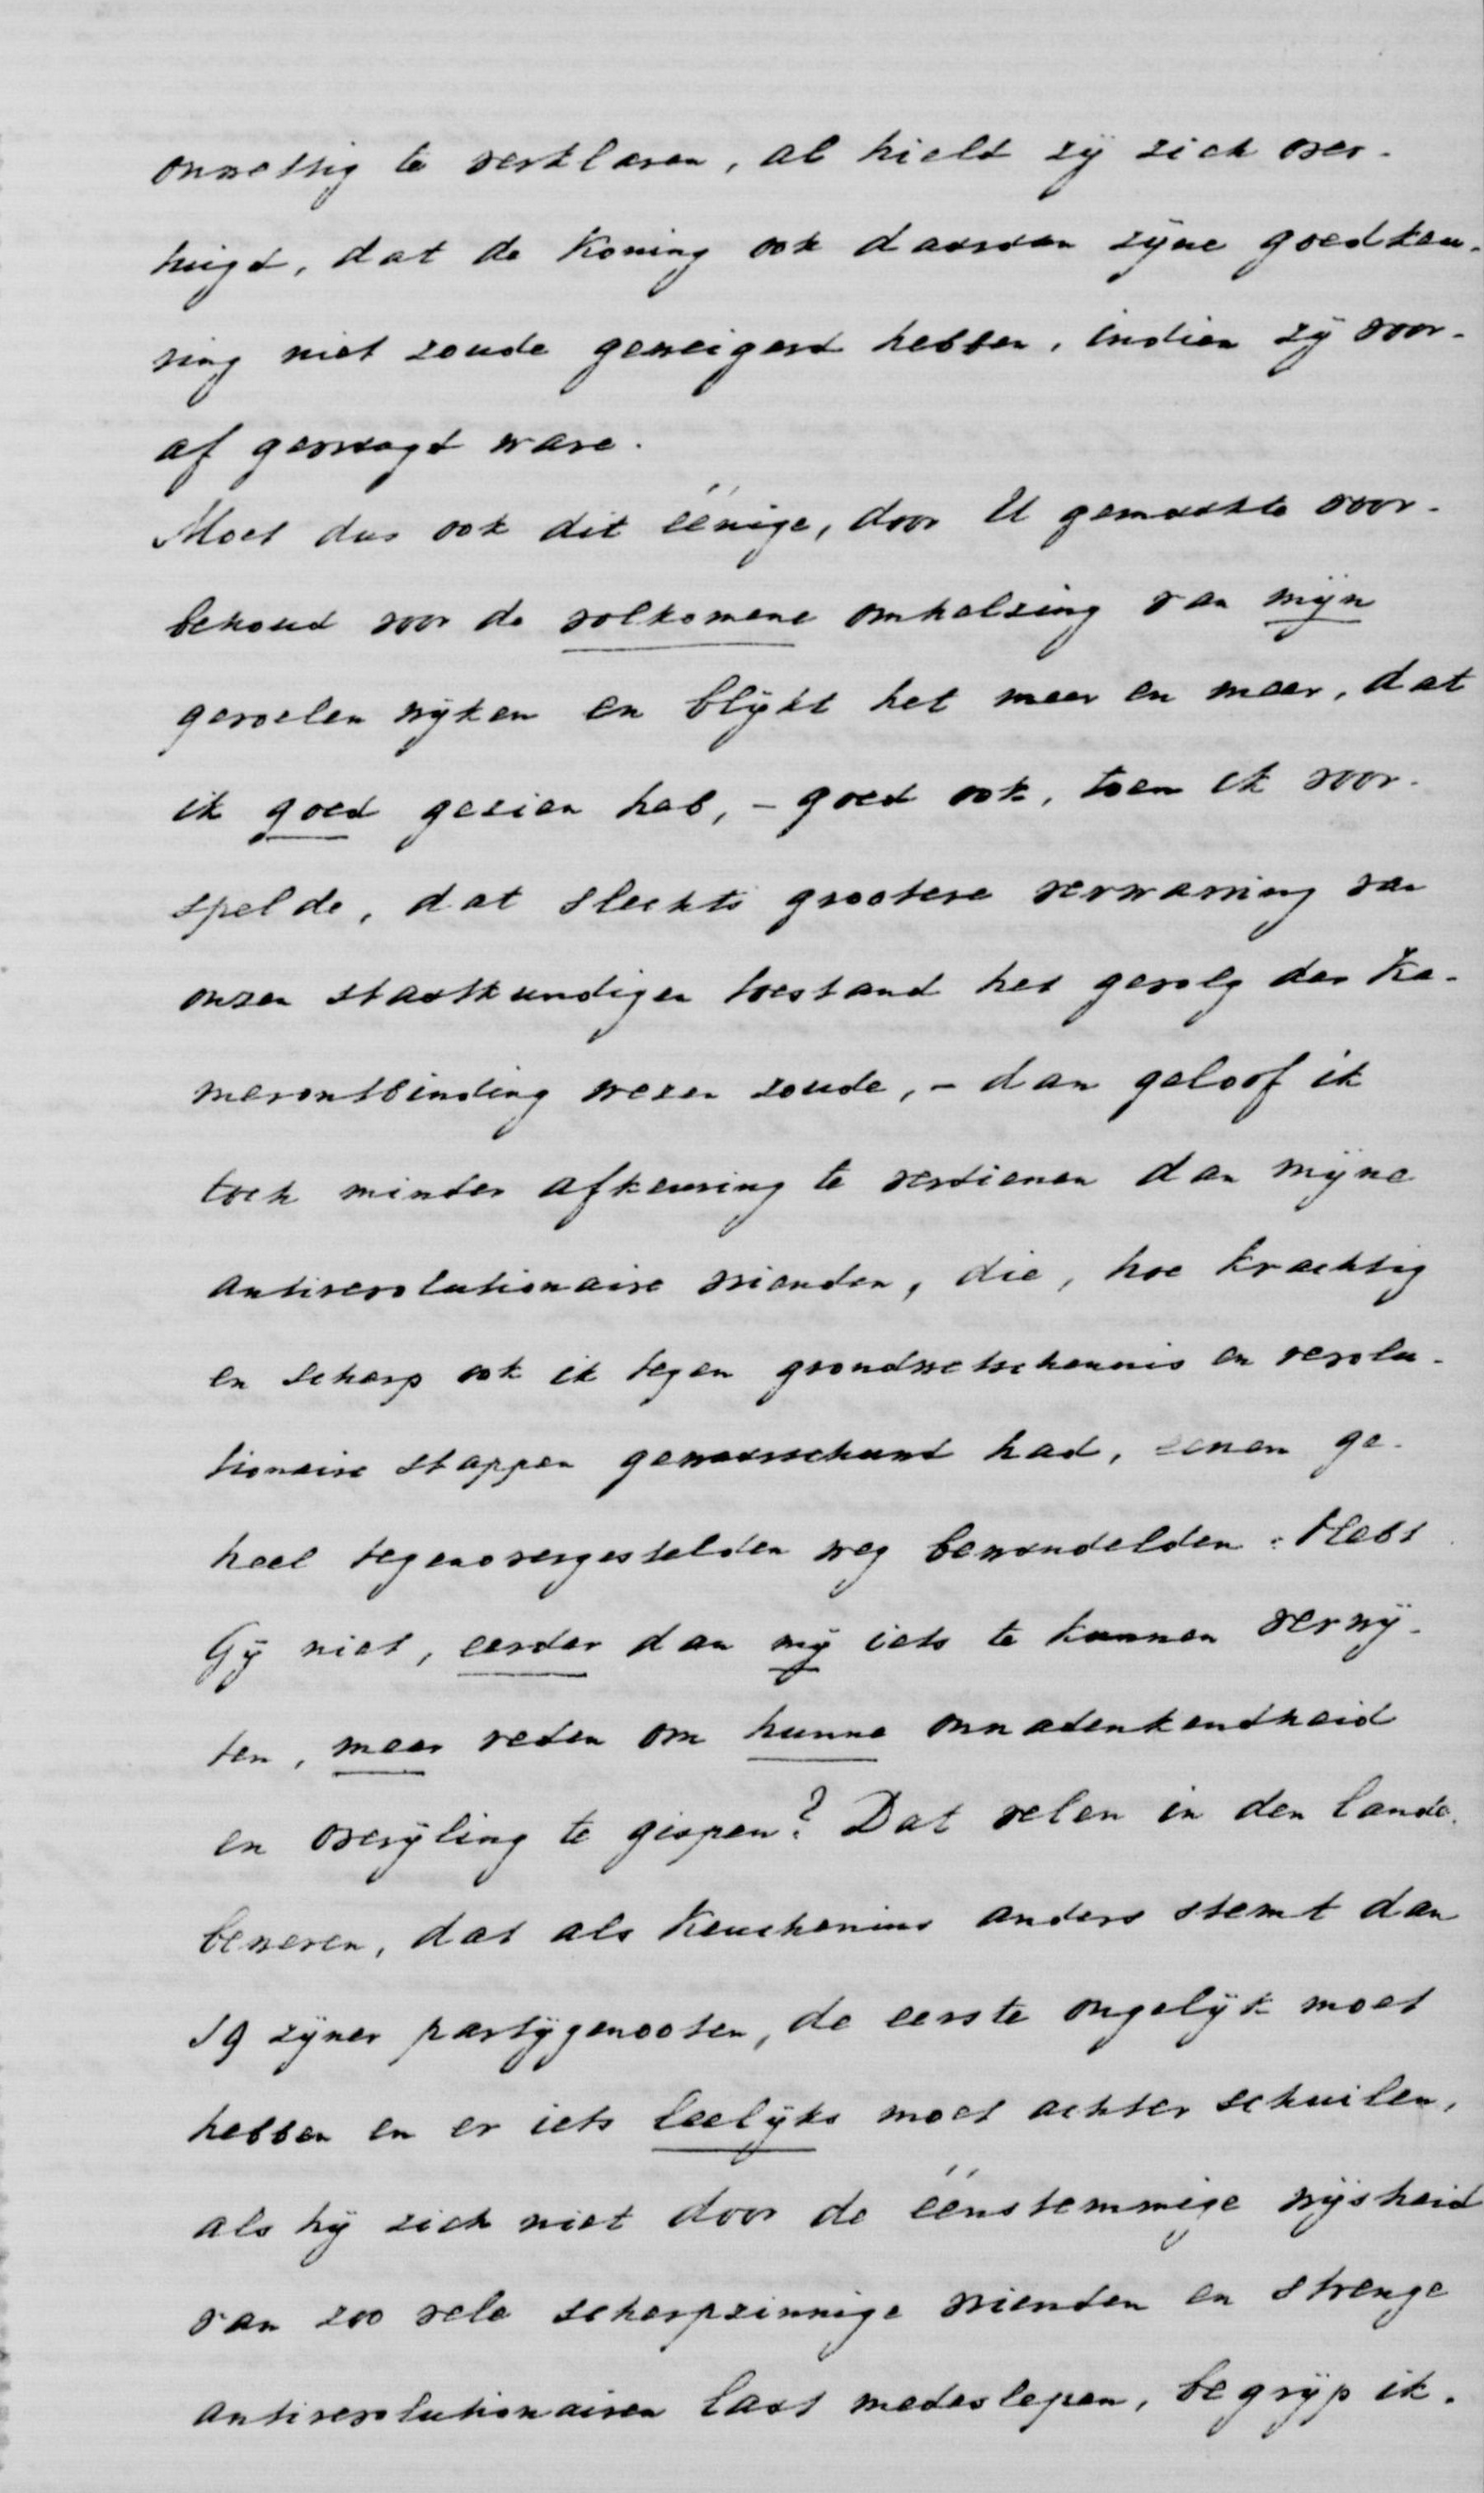 onwettig te verklaren, al hield zij zich over-
tuigd, dat de Koning ook daarvan zijne goedkeu-
ring niet zoude geweigerd hebben, indien zij voor-
af gevraagd ware.
Moet dus ook dit éénige, door U gemaakte voor-
behoud voor de volkomene omhelzing van mijn
gevoelen wijken en blijkt het meer en meer, dat
ik goed gezien heb, - goed ook, toen ik voor-
spelde, dat slechts grootere verwarring van
onzen staatkundigen toestand het gevolg der Ka-
merontbinding wezen zoude, - dan geloof ik
toch minder afkeuring te verdienen dan mijne
antirevolutionaire vrienden, die, hoe krachtig
en scherp ook ik tegen grondwetschennis en revolu-
tionaire stappen gewaarschuwd had, eenen ge-
heel tegenovergestelden weg bewandelden. Hebt
Gij niet, eerder dan mij iets te kunnen verwij-
ten, meer reden om hunne onnadenkendheid
en overijling te gispen? Dat velen in den lande
beweren, dat als Keuchenius anders stemt dan
19 zijner partijgenooten, de eerste ongelijk moet
hebben en er iets leelijks moet achter schuilen,
als hij zich niet door de éénstemmige wijsheid
van zoo vele scherpzinnige vrienden en strenge
antirevolutionairen laat medeslepen, begrijp ik.